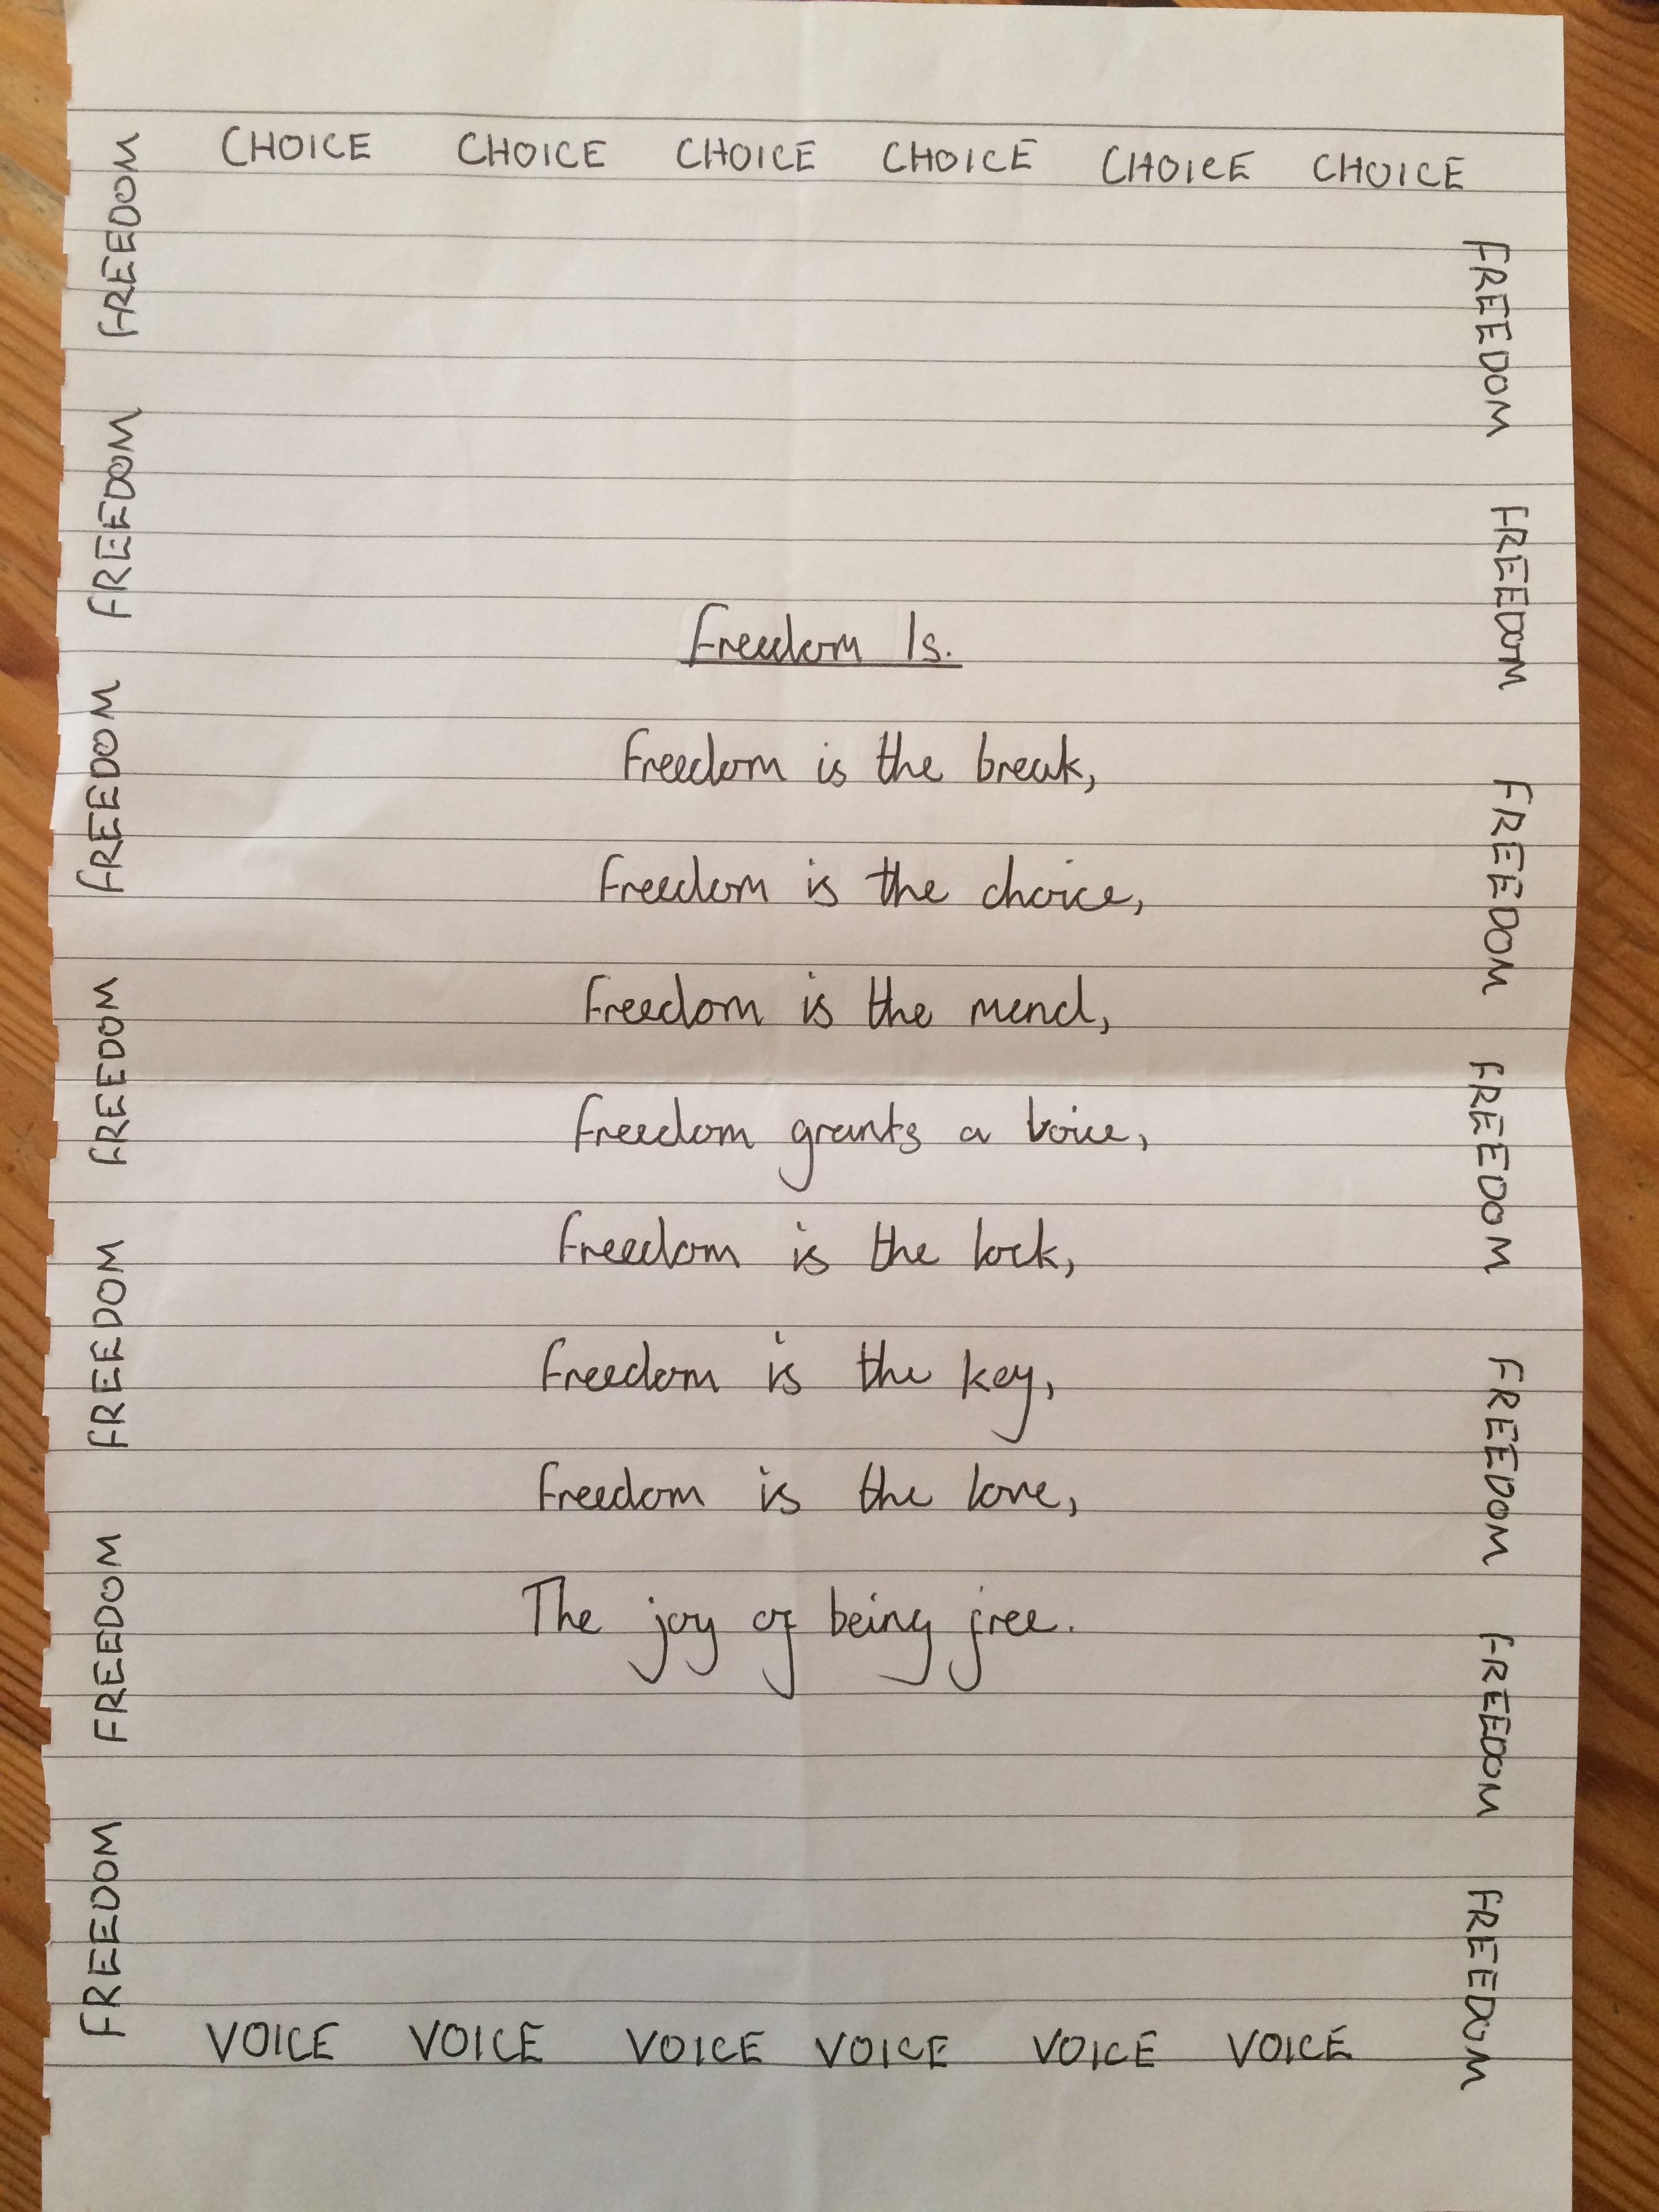 CHOICE CHOICE CHOICE CHOICE CHOICE CHOICE
FREEDOM FREEDOM FREEDOM FREEDOM FREEDOM FREEDOM FREEDOM
Freedom Is.
Freedom is the break,
Freedom is the choice,
Freedom is the mend,
Freedom grants a voice,
Freedom is the lock,
Freedom is the key,
Freedom is the love,
The joy of being free.
FREEDOM FREEDOM FREEDOM FREEDOM FREEDOM FREEDOM FREEDOM
VOICE VOICE VOICE VOICE VOICE VOICE